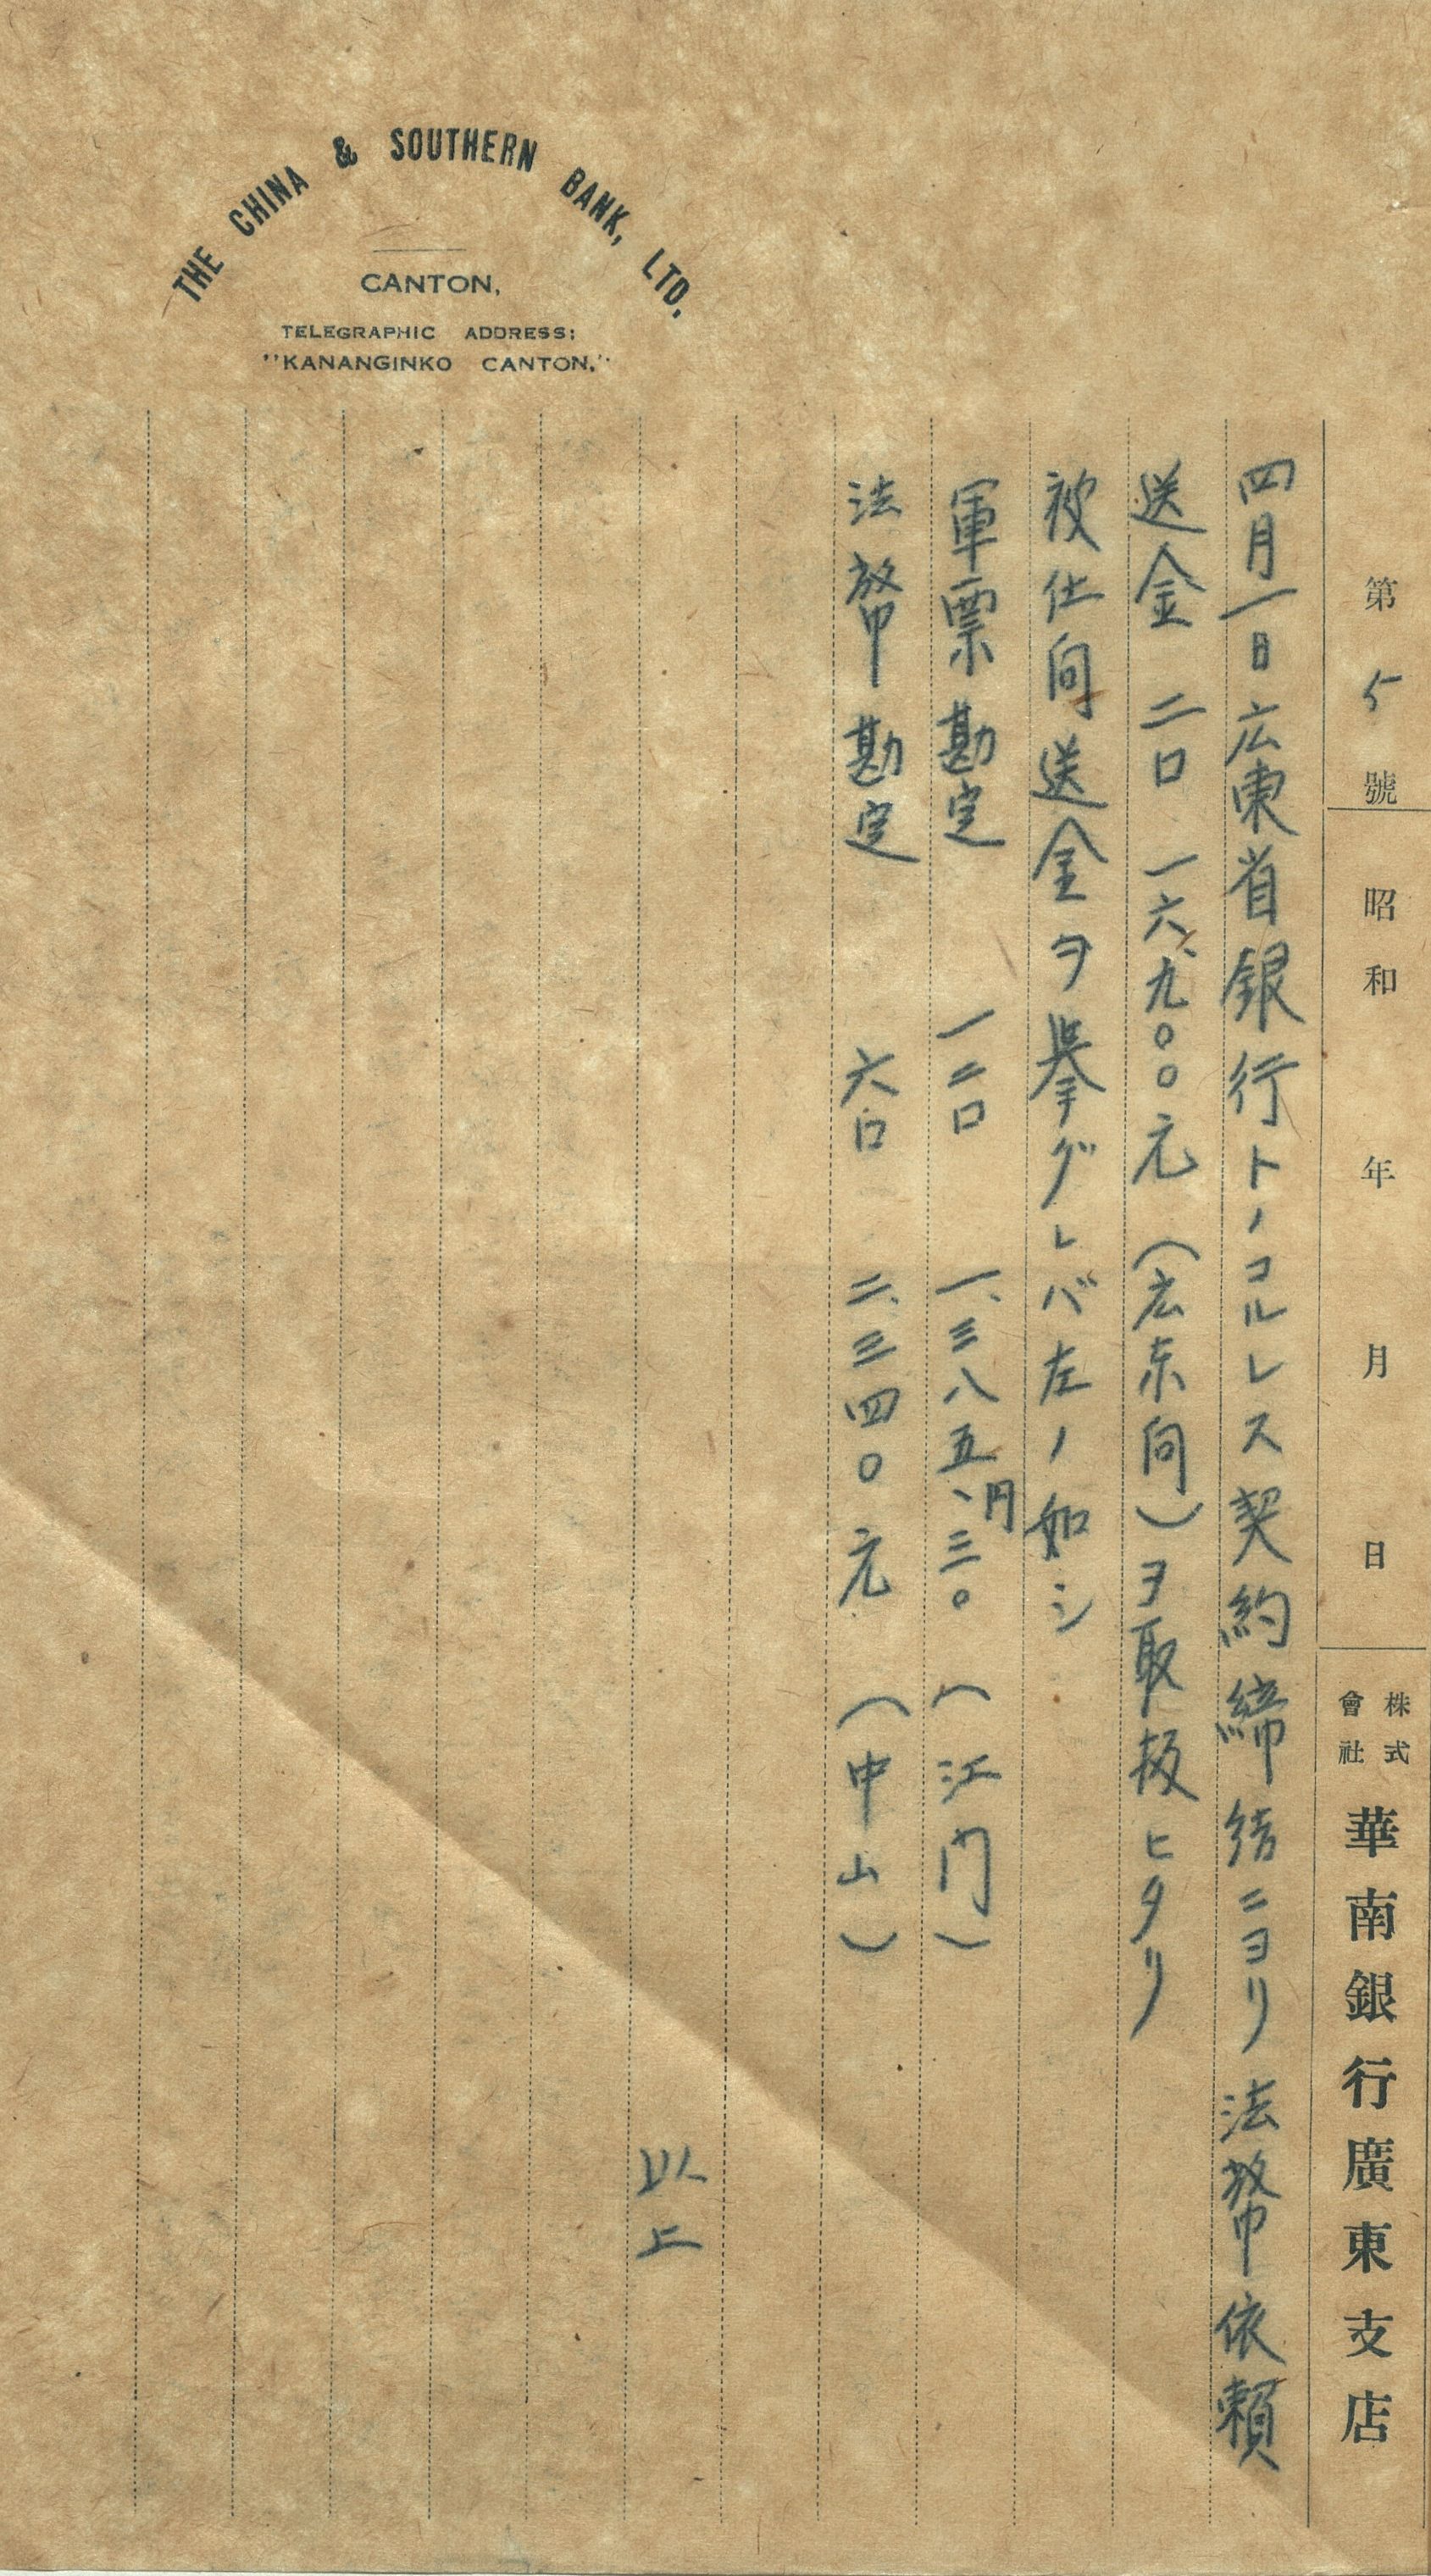 THE CHINA & SOUTHERN BANK, LTD.
CANTON,
TELEGRAPHIC ADDRESS:
"KANANGINKO CANTON."
第 5 號 昭和 年 月 日 株式會社 華南銀行廣東支店
四月一日広東省銀行トノコルレス契約締結ニヨリ法幣依頼
送金 二口 一六、九〇〇元(広東向)ヲ取扱ヒタリ
被仕向送金ヲ挙グレバ左ノ如シ
軍票勘定 一二口 一、三八五、円三〇(江門)
法幣勘定 六口 二、三四〇元(中山)
以上